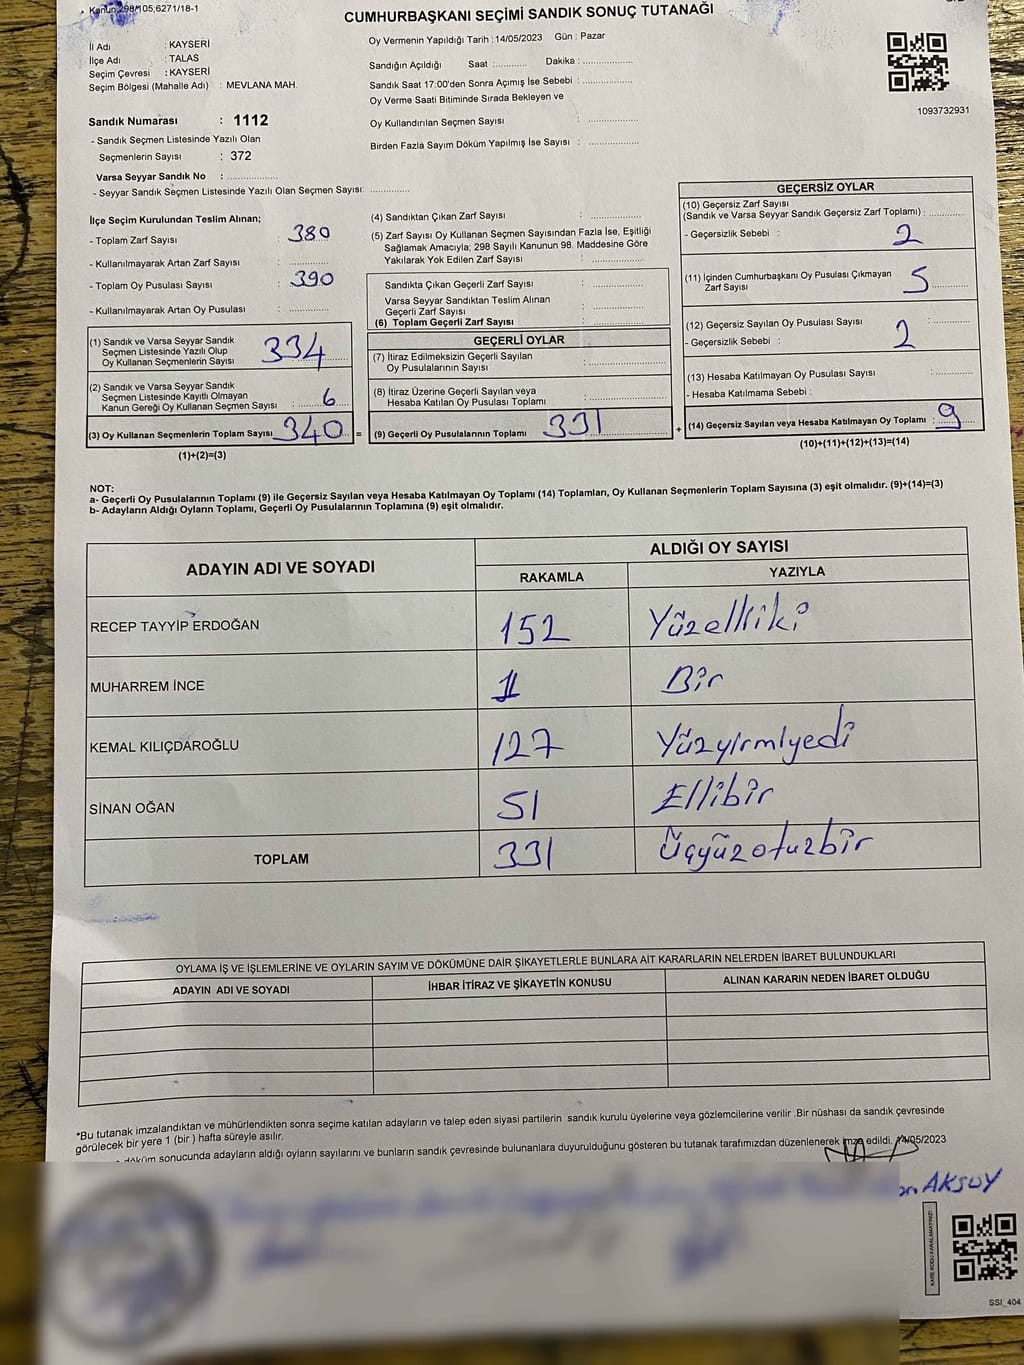 Kanun 298/105,6271/18-1
CUMHURBAŞKANI SEÇİMİ SANDIK SONUÇ TUTANAĞI
İl Adı : KAYSERİ
İlçe Adı : TALAS
Seçim Çevresi : KAYSERİ
Seçim Bölgesi (Mahalle Adı) : MEVLANA MAH.
Sandık Numarası : 1112
- Sandık Seçmen Listesinde Yazılı Olan
Seçmenlerin Sayısı : 372
Varsa Seyyar Sandık No : ..............
- Seyyar Sandık Seçmen Listesinde Yazılı Olan Seçmen Sayısı: ............
Oy Vermenin Yapıldığı Tarih : 14/05/2023 Gün : Pazar
Sandığın Açıldığı Saat :.......... Dakika : ................
Sandık Saat 17:00'den Sonra Açımış İse Sebebi : ................
Oy Verme Saati Bitiminde Sırada Bekleyen ve
Oy Kullandırılan Seçmen Sayısı : ................
Birden Fazla Sayım Döküm Yapılmış İse Sayısı : ................
1093732931
İlçe Seçim Kurulundan Teslim Alınan;
- Toplam Zarf Sayısı : 380
- Kullanılmayarak Artan Zarf Sayısı : ............
- Toplam Oy Pusulası Sayısı : 390
- Kullanılmayarak Artan Oy Pusulası : ............
(1) Sandık ve Varsa Seyyar Sandık
Seçmen Listesinde Yazılı Olup
Oy Kullanan Seçmenlerin Sayısı : 334
(2) Sandık ve Varsa Seyyar Sandık
Seçmen Listesinde Kayıtlı Olmayan
Kanun Gereği Oy Kullanan Seçmen Sayısı : 6
(3) Oy Kullanan Seçmenlerin Toplam Sayısı : 340 =
(1)+(2)=(3)
(4) Sandıktan Çıkan Zarf Sayısı : ................
(5) Zarf Sayısı Oy Kullanan Seçmen Sayısından Fazla İse, Eşitliği
Sağlamak Amacıyla; 298 Sayılı Kanunun 98. Maddesine Göre
Yakılarak Yok Edilen Zarf Sayısı : ................
Sandıkta Çıkan Geçerli Zarf Sayısı : ................
Varsa Seyyar Sandıktan Teslim Alınan
Geçerli Zarf Sayısı : ................
(6) Toplam Geçerli Zarf Sayısı : ................
GEÇERLİ OYLAR
(7) İtiraz Edilmeksizin Geçerli Sayılan
Oy Pusulalarının Sayısı : ................
(8) İtiraz Üzerine Geçerli Sayılan veya
Hesaba Katılan Oy Pusulası Toplamı : ................
(9) Geçerli Oy Pusulalarının Toplamı 331 +
GEÇERSİZ OYLAR
(10) Geçersiz Zarf Sayısı
(Sandık ve Varsa Seyyar Sandık Geçersiz Zarf Toplamı) : ............
- Geçersizlik Sebebi : 2
(11) İçinden Cumhurbaşkanı Oy Pusulası Çıkmayan
Zarf Sayısı : 5
(12) Geçersiz Sayılan Oy Pusulası Sayısı :
- Geçersizlik Sebebi : 2
(13) Hesaba Katılmayan Oy Pusulası Sayısı : ............
- Hesaba Katılmama Sebebi :
(14) Geçersiz Sayılan veya Hesaba Katılmayan Oy Toplamı : 9
(10)+(11)+(12)+(13)=(14)
NOT:
a- Geçerli Oy Pusulalarının Toplamı (9) ile Geçersiz Sayılan veya Hesaba Katılmayan Oy Toplamı (14) Toplamları, Oy Kullanan Seçmenlerin Toplam Sayısına (3) eşit olmalıdır. (9)+(14)=(3)
b- Adayların Aldığı Oyların Toplamı, Geçerli Oy Pusulalarının Toplamına (9) eşit olmalıdır.
ADAYIN ADI VE SOYADI ALDIĞI OY SAYISI
RAKAMLA YAZIYLA
RECEP TAYYİP ERDOĞAN 152 Yüzelliiki
MUHARREM İNCE 1 Bir
KEMAL KILIÇDAROĞLU 127 Yüzyirmiyedi
SİNAN OĞAN 51 Ellibir
TOPLAM 331 Üçyüzotuzbir
OYLAMA İŞ VE İŞLEMLERİNE VE OYLARIN SAYIM VE DÖKÜMÜNE DAİR ŞİKAYETLERLE BUNLARA AİT KARARLARIN NELERDEN İBARET BULUNDUKLARI
ADAYIN ADI VE SOYADI İHBAR İTİRAZ VE ŞİKAYETİN KONUSU ALINAN KARARIN NEDEN İBARET OLDUĞU
*Bu tutanak imzalandıktan ve mühürlendikten sonra seçime katılan adayların ve talep eden siyasi partilerin sandık kurulu üyelerine veya gözlemcilerine verilir .Bir nüshası da sandık çevresinde
görülecek bir yere 1 (bir ) hafta süreyle asılır.
döküm sonucunda adayların aldığı oyların sayılarını ve bunların sandık çevresinde bulunanlara duyurulduğunu gösteren bu tutanak tarafımızdan düzenlenerek imza edildi. 14/05/2023
AKSUY
KARE KODU KARALAMAYINIZ!
SSI_404